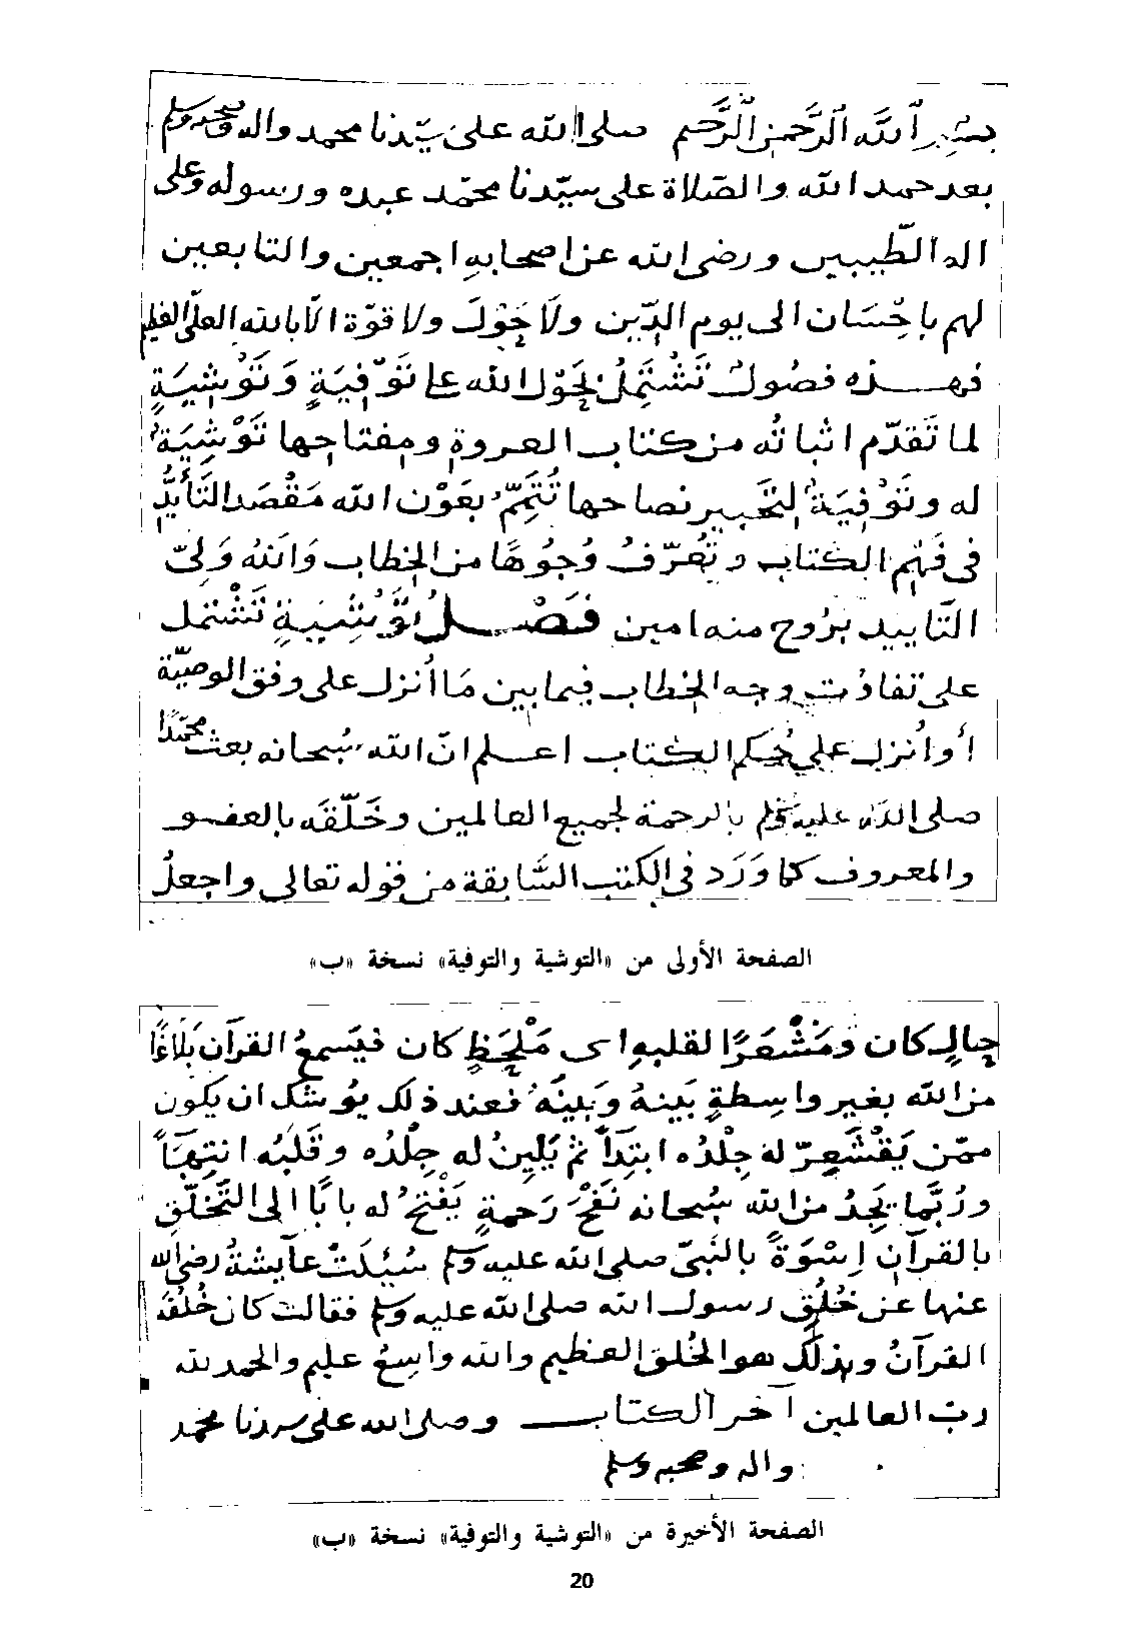 بسم اللَّه الرَّحمن الرَّحيم صلى الله على سيّدنا محمد واله وصحبه وسلم
بعد حمد الله والصّلاة على سيّدنا محمّد عبده ورسوله وعلى
اله الطّيبين ورضى الله عن اصحابه اجمعين والتابعين
لهم باحْسَان الى يوم الدّين ولَا حَوْلَ ولا قوّة الّا بالله العلىّ العظيم
فهذه فصُولٌ تَشْتَمِلُ بحَوْل الله على تَوْفِيَةٍ وَتَوْشِيَةٍ
لما تَقدّم اثباتُه من كتاب العروة ومفتاحها تَوْشِيَةٌ
له وتَوْفِيَةٌ لتَحبير نصاحها تُتَمِّمُ بعَوْن الله مَقْصَد التَّأيُّدِ
فى فَهْم الكتاب وتُعَرّفُ وُجُوهًا من الخطاب وَاللهُ وَلِىّ
التَّاييد برُوح منه امين فَصْلُ تَوْشِيَةٍ تَشْتمل
على تفاوُت وجه الخطاب فيما بين مَا أُنزل على وفق الوصيّة
أو أُنزل على حُكم الكتاب اعلم انّ الله سُبحانه بعث محمّدًا
صلى الله عليه وسلم بالرحمة لجميع العالمين وخَلَّقَه بالعفو
والمعروف كما وَرَدَ فى الكتب السَّابقة من قوله تعالى واجعلُ
الصفحة الأولى من «التوشية والتوفية» نسخة «ب»
حالٍ كان ومَشْعَرًا لقلبه اى مَلْحَظٍ كان فيَسمعُ القرآن بَلَاغًا
من الله بغير واسِطةٍ بَينهُ وَبَينَهُ فعند ذلك يُوشك ان يكون
ممّن يَقْشَعِرّ له جِلْدُه ابتِدَآءً ثم يَلِينُ له جِلْدُه وقَلبُه انتِهَآءً
ورُبَّما يَجِدُ من الله سُبحانه نَفْحَ رَحمةٍ يَفْتحُ له بابًا الى التَّخَلّقِ
بالقرآن اِسْوَةً بالنَّبىّ صلى الله عليه وسلم سُئِلَتْ عآيشةُ رضى الله
عنها عن خُلُقِ رسول الله صلى الله عليه وسلم فقالت كان خُلُقُه
القرآنُ وبذلك هو الخُلق العظيم والله واسِعٌ عليم والحمد لله
ربّ العالمين آخر الكتاب وصلى الله على سيدنا محمد
واله وصحبه وسلم
الصفحة الأخيرة من «التوشية والتوفية» نسخة «ب»
20